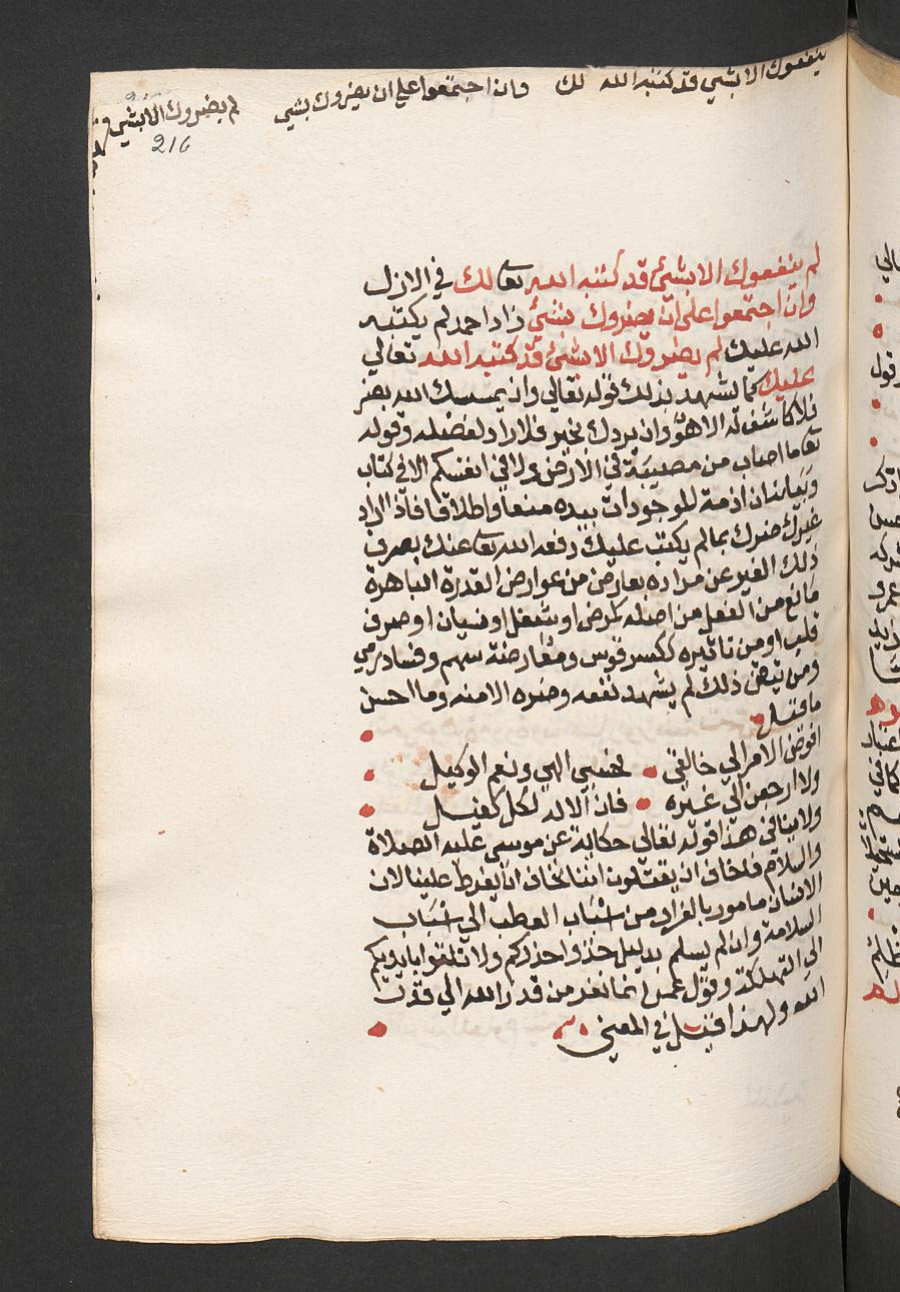 ينفعوك الا بشي قد كتبه الله لك وان اجتمعوا علي ان يضروك بشي لم يضروك الا بشي
216
لم ينفعوك الا بشئ قد كتبه الله تعالك في الازل
وان اجتمعوا على ان يضروك بشئ زاد احمد لم يكتبه
الله عليك لم يضروك الا بشئ قد كتبه الله تعالي
عليك كما يشهد بذلك قوله تعالي وان يمسسك الله بضر
فلا كاشف له الا هو وان يردك بخير فلا راد لفضله وقوله
تعا ما اصاب من مصيبة في الارض ولا في انفسكم الا في كتاب
وبيانه ان ازمة الموجودات بيده منعا واطلاقا فاذا اراد
غيرك ضرك بما لم يكتب عليك دفعه الله تعا عنك بصرف
ذلك الغير عن مراده بعارض من عوارض القدرة الباهرة
مانع من الفعل من اصله كمرض او شغل او نسيان او صرف
قلب او من تاثيره ككسر قوس ومعارضة سهم وفساد رمي
ومن تيقن ذلك لم يشهد نفعه وضره الا منه وما احسن
ما قيل
افوض الامر الي خالقي فحسبي الهي ونعم الوكيل
ولا ارجعن الي غيره فان الاله لكل كفيل
ولا ينافي هذا قوله تعالي حكاية عن موسي عليه الصلاة
والسلام فاخاف ان يقتلون اننا نخاف ان يفرط علينا لان
الانسان مامور بالفرار من اسباب العطب الي اسباب
السلامة وان لم يسلم بدليل خذوا حذركم ولا تلقوا بايديكم
الي التهلكة وقول عمر انما نفر من قدر الله الي قدر
الله ولهذا قيل في المعني